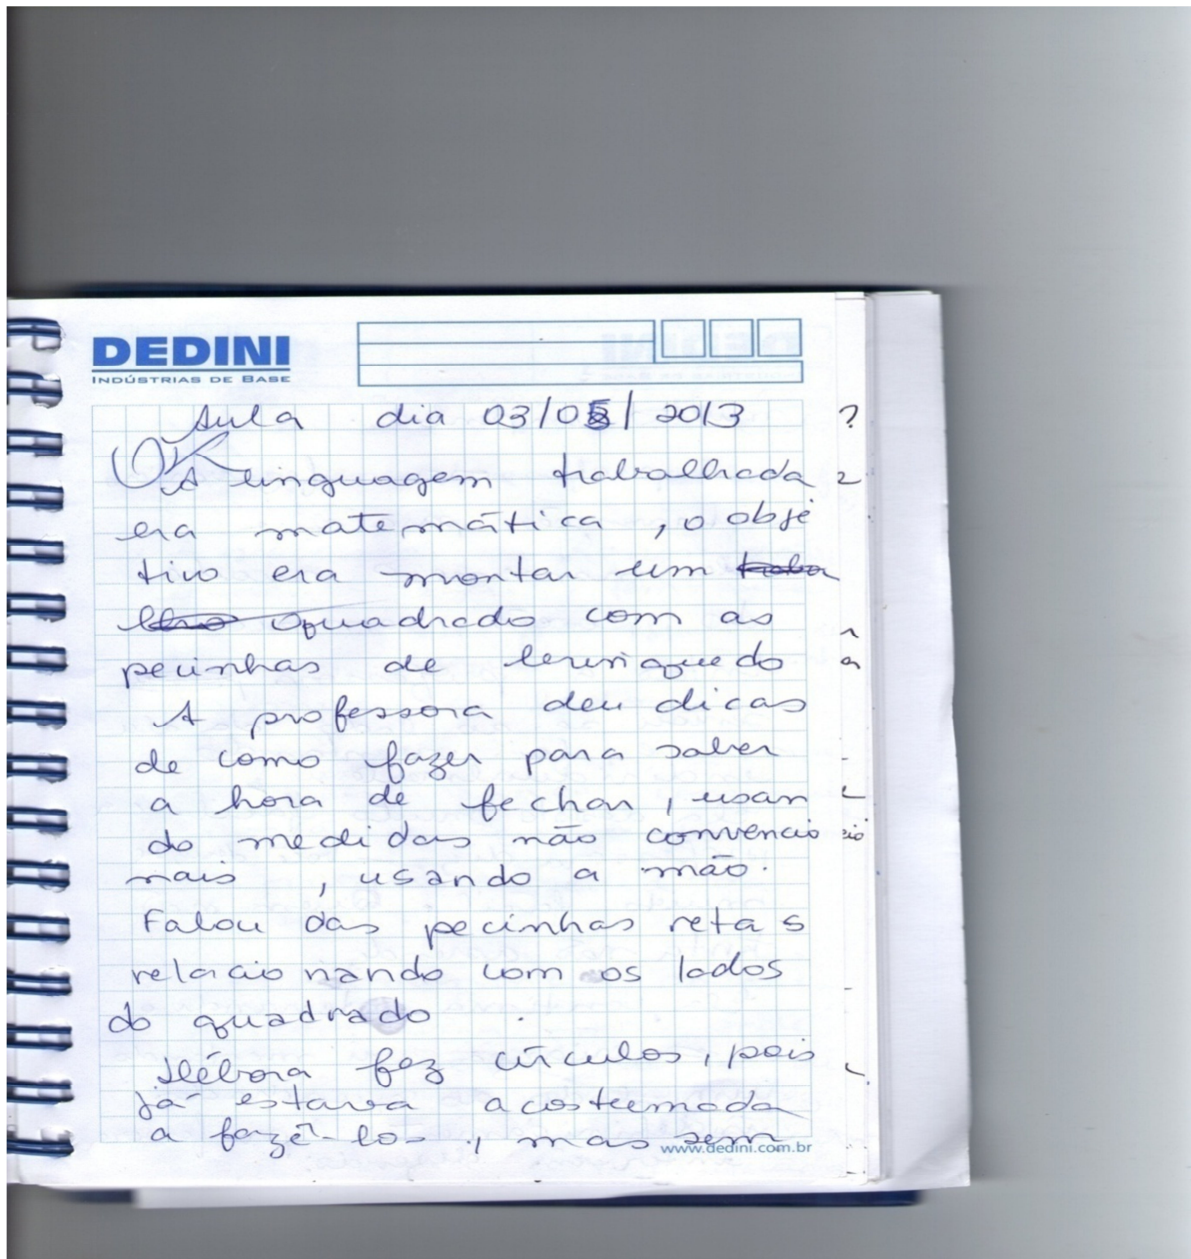 DEDINI
INDÚSTRIAS DE BASE
Aula dia 03/05/2013
OK
A linguagem trabalhada
era matemática, o obje
tivo era montar um traba
lho quadrado com as
pecinhas de brinquedo
A professora deu dicas
de como fazer para saber
a hora de fechar, usan
do medidas não convencio
nais, usando a mão.
Falou das pecinhas retas
relacionando com os lados
do quadrado.
Débora fez círculos, pois
já estava acostumada
a fazê-los, mas sem
www.dedini.com.br